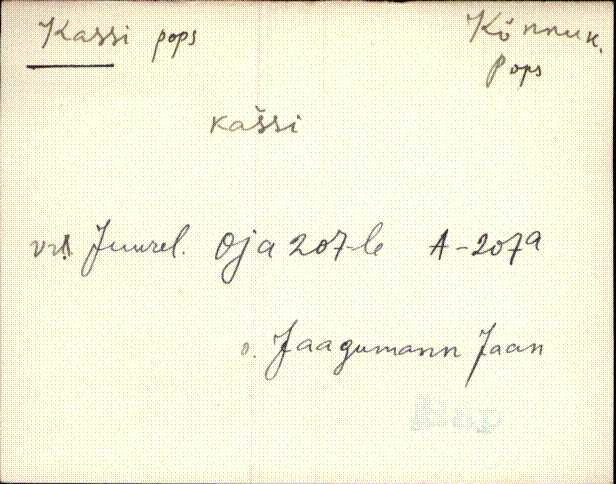 Kassi pops
Kõnnuk.
Pops
kašsi
vrd. Juurel. Oja 207-le A-207a
o. Jaagumann Jaan